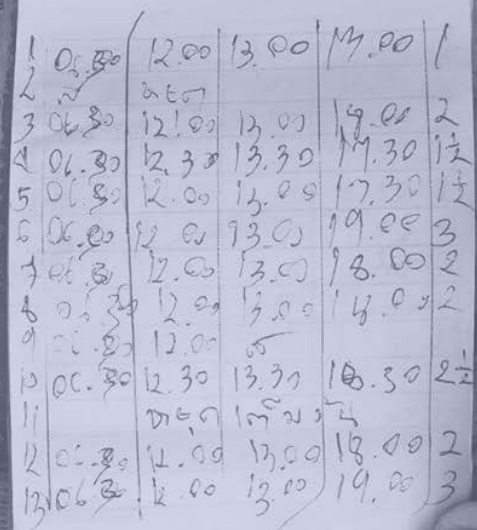 1 06.30 12.00 13.00 17.00 1
2 หยุด
3 06.30 12.00 13.00 18.00 2
4 06.30 12.30 13.30 17.30 1½
5 06.30 12.00 13.00 17.30 1½
6 06.30 12.00 13.00 19.00 3
7 06.30 12.00 13.00 18.00 2
8 06.30 12.00 13.00 18.00 2
9 06.30 12.00
10 06.30 12.30 13.30 18.30 2½
11 หยุด เต็มวัน
12 06.30 12.00 13.00 18.00 2
13 06.30 12.00 13.00 19.00 3